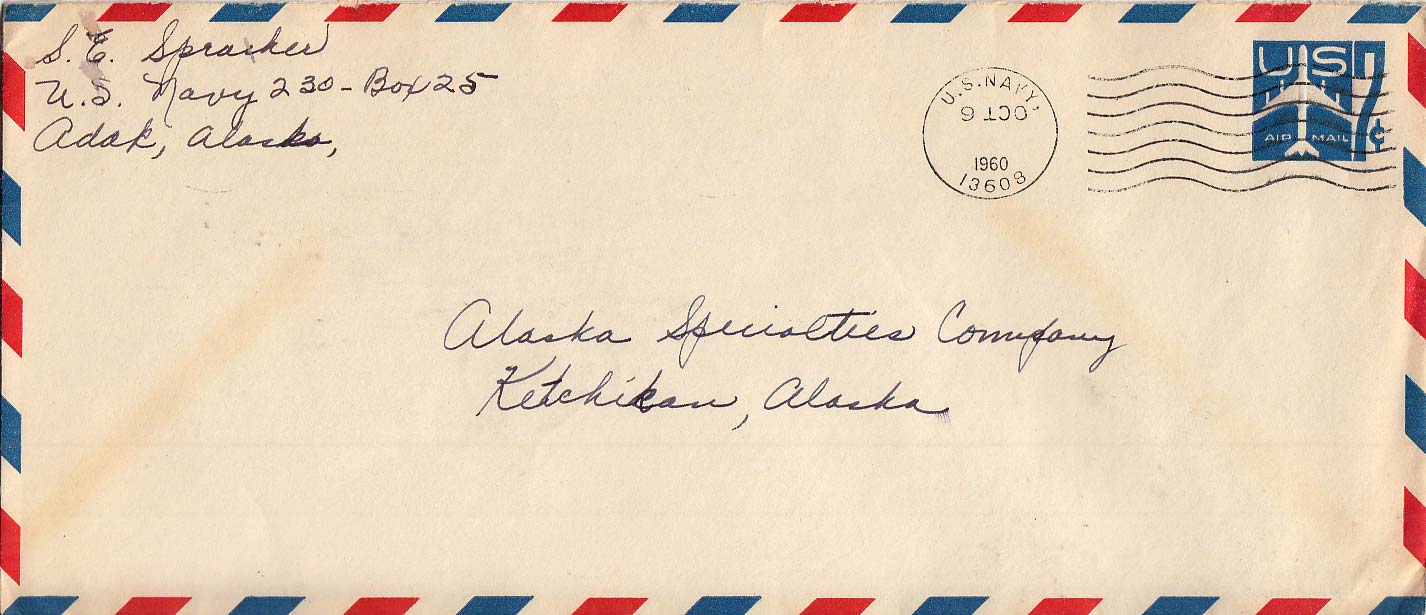 S. E. Spracher
U.S. Navy 230 - Box 25
Adak, Alaska,
U.S. NAVY,
OCT 6
1960
13608
US
7¢
AIR MAIL
Alaska Specialties Company
Ketchikan, Alaska